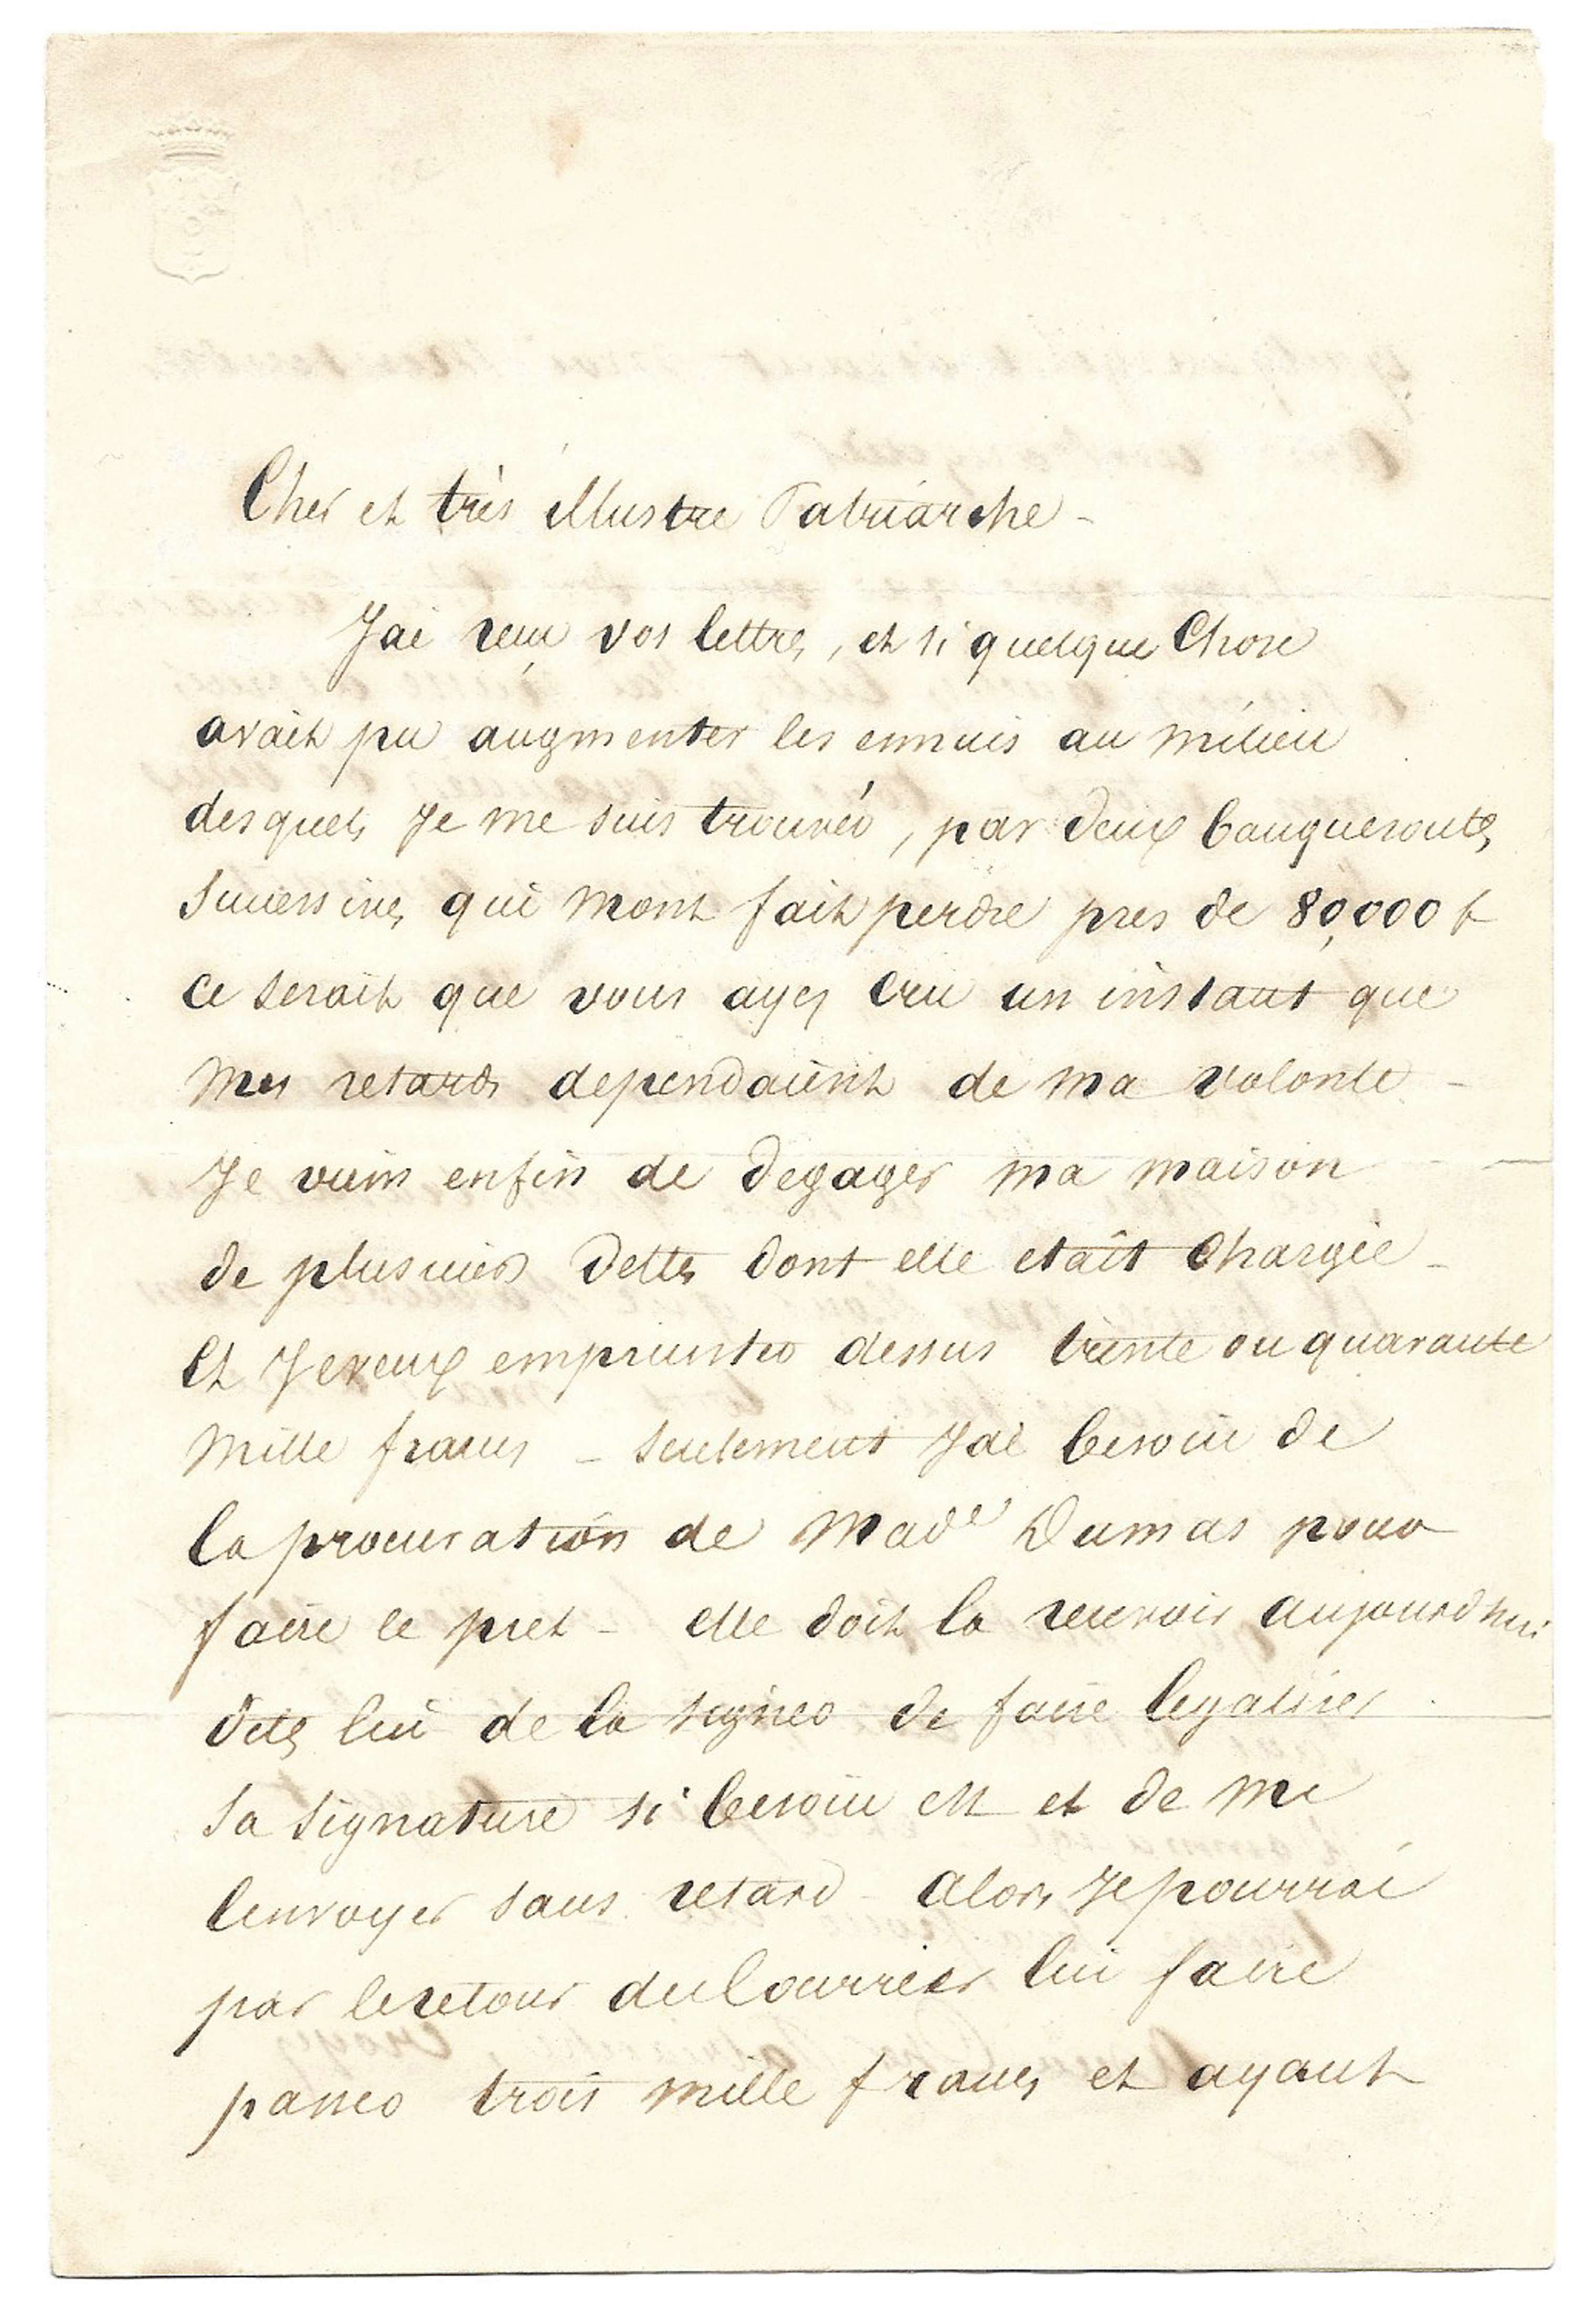 Cher et très illustre Patriarche -
Jai reçu vos lettres, et si quelque Chose
avait pu augmenter les ennuis au milieu
desquels Je me suis trouvéo, par deux banqueroutes
successives qui mont fait perdre pres de 80,000 f
ce serait que vous ayez cru un instant que
mes retards dependaient de ma volonte -
Je viens enfin de degager ma maison -
de plusieurs Dettes dont elle etait Chargée -
Et Je veux emprunter dessus trente ou quarante
Mille francs - seulement Jai besoin de
la procuration de Made Dumas pour
faire le pret - elle doit la recevoir aujourdhui
dites lui de la signer de faire legaliser
sa signature si besoin est et de me
lenvoyer sans retard - alors Je pourrai
par le retour du Courrier lui faire
passer trois mille francs et ayant